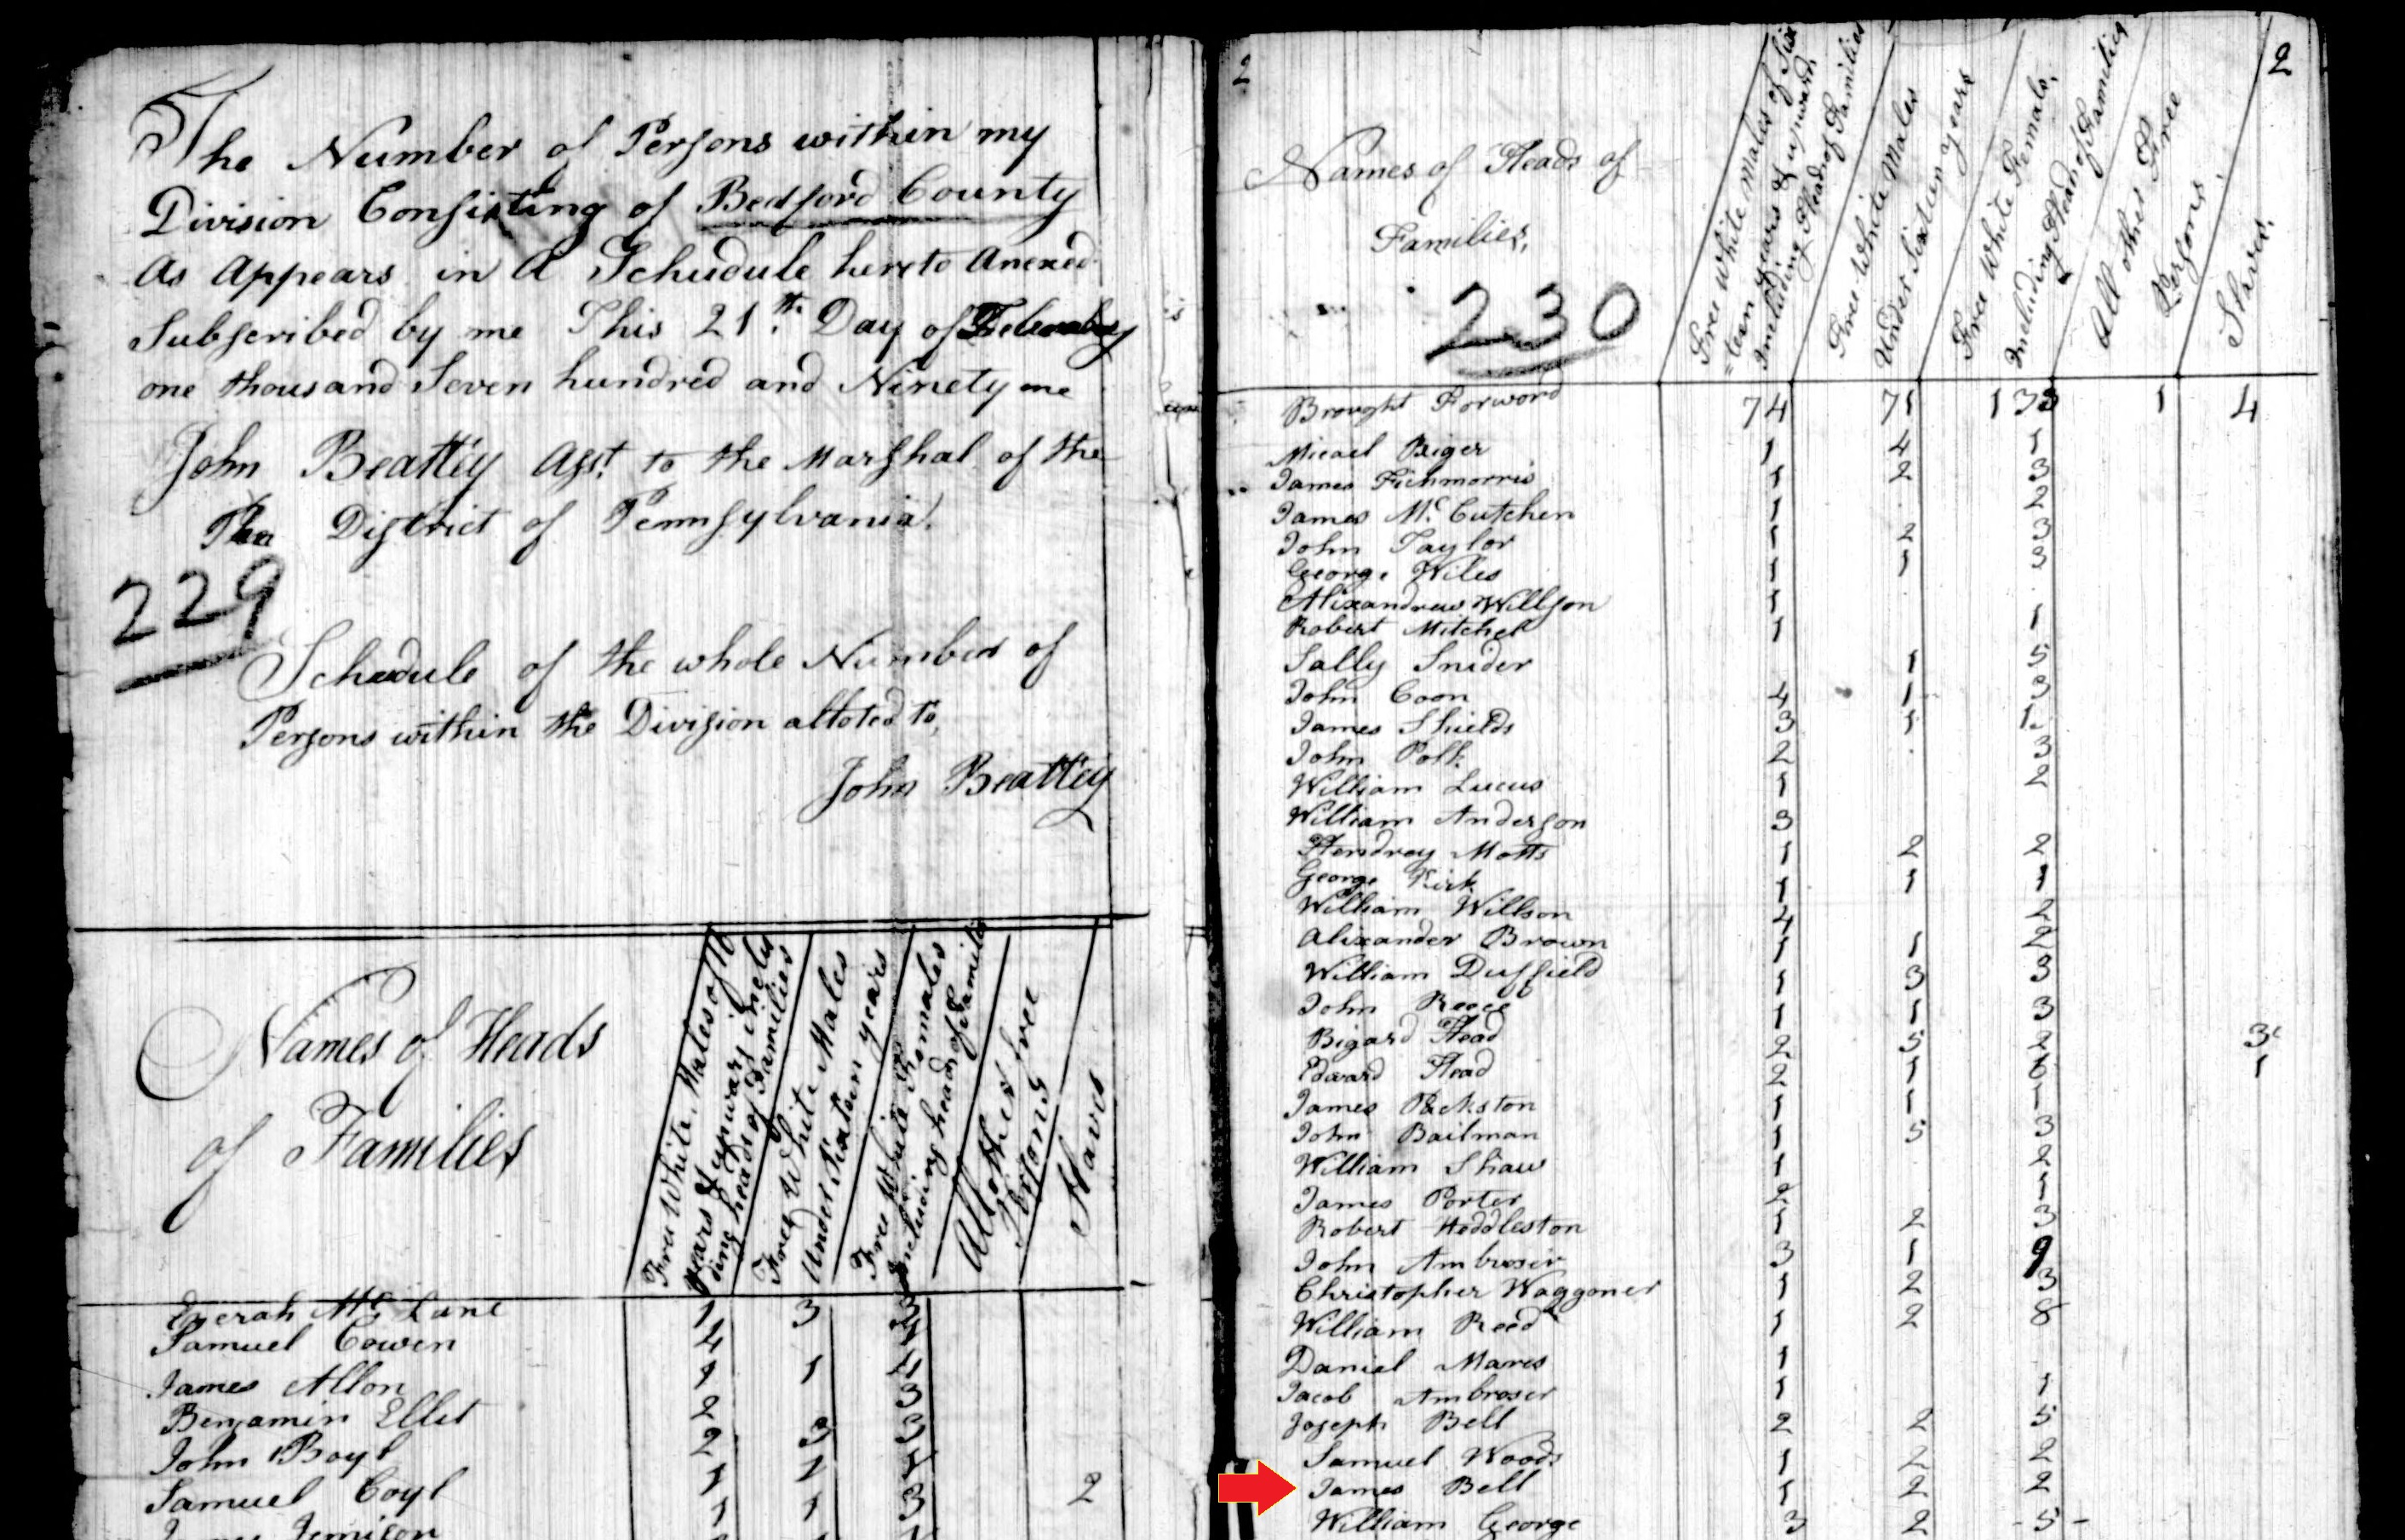 The Number of Persons within my
Division Consisting of Bedford County
As Appears in A Schudule hereto Anexed
Subscribed by me This 21th Day of February
one thousand Seven hundred and Ninety one
John Beattey Asst. to the Marshal of the
District of Pennsylvania.
229
Schudule of the whole Number of
Persons within the Division alloted to,
John Beattey
Names of Heads
of Families
Free White Males of 16
years & upwards inclu
ding heads of Families
Free White Males
Under Sixteen years
Free White Females
Including heads of Families
All other free
Persons
Slaves
Mc Lane 1 3 3
Samuel Cowen 4
James Allon 1 1 4
Benjamin Ellit 2 3
John Boyl 2 3 3
Samuel Coyl 1 1
1 1 3 2
2
2
Names of Heads of
Families,
230
Free White Males of Six
=teen years & upward
Including Heads of Families
Free White Males
Under Sixteen years
Free White Femals,
Including Heads of Families
All other Free
Persons,
Slaves,
Brought Forword 74 71 133 1 4
Micael Biger 1 4 1
James Fichmorris 1 2 3
James Mc Cutchen 1 2
John Taylor 1 2 3
George Wiles 1 1 3
Alixandrew Willson 1
Robert Mitchel 1 1
Sally Snider 1 5
John Coon 4 1 3
James Shields 3 1 1
John Polk 2 3
William Lucus 1 2
William Anderson 3
Hendrey Motts 1 2 2
George Kirk 1 1 1
William Willson 4 2
Alixander Brown 1 1 2
William Duffield 1 3 3
John Reece 1 1 3
Bigard Head 2 5 2 3
Edward Head 2 1 6 1
James Packston 1 1 1
John Bailman 1 5 3
William Shaw 1 2
James Porter 2 1
Robert Heddleston 1 2 3
John Ambroser 3 1 9
Christopher Waggoner 1 2 3
William Reed 1 2 8
Daniel Mares 1
Jacob Ambroser 1 1
Joseph Bell 2 2 5
Samuel Woods 1 2 2
James Bell 1 2 2
William George 3 2 5